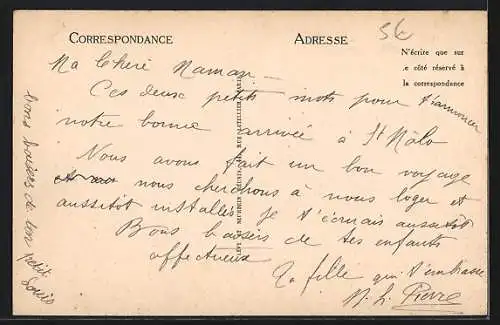 CORRESPONDANCE
ADRESSE
5€
N'écrire que sur
le côté réservé à
la correspondance
Ma Chère Maman
Ces deux petits mots pour t'annoncer
notre bonne arrivée à St Mâlo
Nous avons fait un bon voyage
nous cherchons à nous loger et
aussitôt installés je t'écrirais aussitôt
Bons baisers de tes enfants
affectueux
Ta fille qui t'embrasse
Pierre
bons baisers de ton
petit Louis